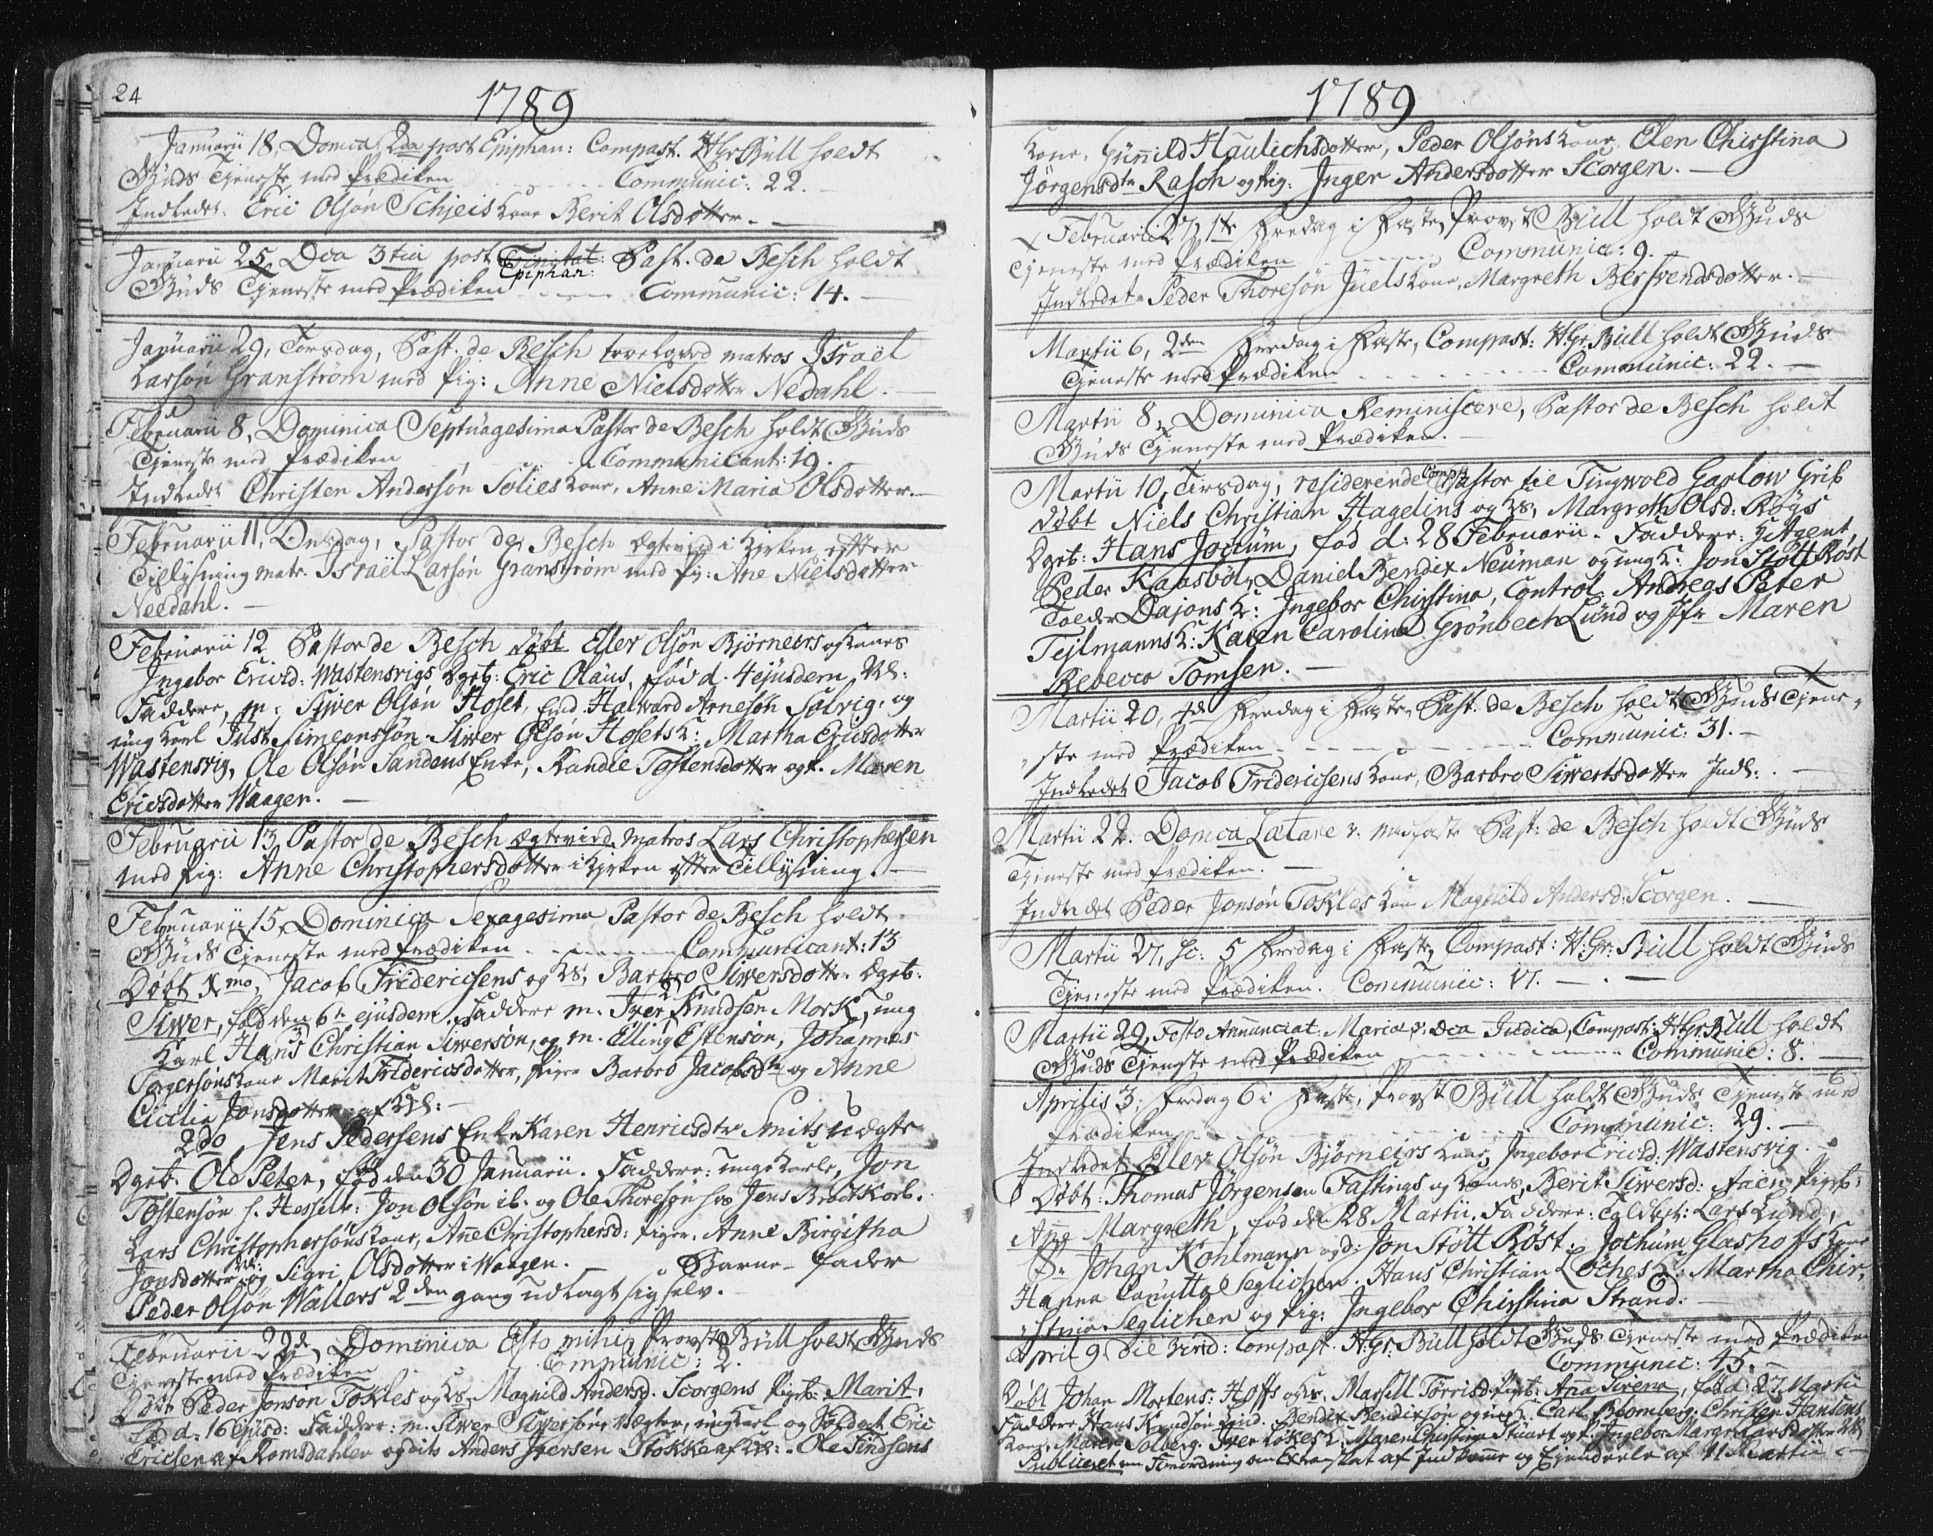 24
1789
Januarii 18, Domca 2da post Epiphan: Compast. HGrBüll holdt
Guds Tjeneste med Prædiken Communic: 22.
Indledet. Eric Olsøn Schjeis kone Berit Olsdotter.
Januarii 25, Dca 3tia post Trinitat: Past. de Besch holdt
Epiphan:
Guds Tjeneste med Prædiken Communic: 14.
Januarii 29, Torsdag, Past. de Besch trolovet matros Israel
Larsøn Granström med pig: Anne Nielsdotter Nedahl.
Februarii 8, Dominica Septuagesima Pastor de Besch holdt Guds
Tjeneste med Prædiken Communicant: 19.
Indledet Christen Andersøn Solies kone, Anne Maria Olsdotter.
Februarii 11, Onsdag, Pastor de Besch ægtevied i Kirken efter
Tillysning matr. Israel Larsøn Granstrøm med pig: Ane Nielsdotter
Needahl.
Februarii 12 Pastor de Besch døbt Eller Olsøn Bjørneirs og kones
Ingebor Ericsd: Wastensvigs Dgeb: Eric Olaus, fød d. 4 ejusdem
Faddere, m: Siwer Olsøn Hoset, Halward Arnesøn Solvig, og
ung karl Just Simeonssøn, Siwer Olsøn Hosets K: Martha Ericsdotter
Wastensvig, Ole Olsøn Sandens Enke, Randie Tostensdotter og p. Maren
Ericsdotter Waagen.
Februarii 13 Pastor de Besch ægtevied matros Lars Christophersen
med pig: Anne Christophersdotter i Kirken efter Tillysning.
Februarii 15, Dominica Sexagesima Pastor de Besch holdt
Guds Tjeneste med Prædiken Communicant: 13
Døbt 1mo, Jacob Fridericsens og Ks, Barbro Siwersdotter Dgeb:
Siwer, fød den 6te ejusdem. Faddere m. Iver Knudsen Mork, ung
Karl Hans Christian Siwersøn, og m. Elling Estensøn, Johannes
Torgersøns kone Marit Fridericsdotter, piger Barbro Jacobsdtr og Anne
Cicilia Jonsdotter af
2do Jens Pedersens Enke Karen Henricsdtr Smits uægte
Dgeb. Ole Peter, fød den 30 Januarii. Faddere: unge Karle, Jon
Tostensøn h. Hesselb: Jon Olsøn ib. og Ole Thoresøn hos Jens Brodtkorb.
Lars Christophersøns kone, Ane Christophersd: piger. Anne Birgitha
Jonsdotter og Sigri Olsdotter i Waagen. Barne-fader
Peder Olsøn Wallers 2den gang udlagt sig selv.
Februarii 22d, Dominica Esto mihi, Provst Büll holdt Guds
Tjeneste med Prædiken Communic: 2.
Døbt Peder Jonsøn Tokles og Ks. Magnild Andersd. Scorgens Pigeb: Marit,
fød d: 16 ejusd: Faddere: m. Siwer Siwersøn, Vægter, ung karl og Soldat Eric
Ericsen af Romsdahlen og dito Anders Iversen Stokke af Ole Sindsens
1789
kone, Günild Haulichsdotter, Peder Olsøns kone, Elen Chirstina
Jørgensdtr Rasch og pig: Inger Andersdotter Scorgen.
Februarii 27, 1te Fredag i Faste, Provst Büll holdt Guds
Tjeneste med Prædiken Communic: 9.
Indledet Peder Thoresøn Juels kone, Margreth Bersvendsdotter.
Martii 6, 2den Fredag i Faste, Compast: HGr.Büll holdt Guds
Tjeneste med Prædiken Communic: 22.
Martii 8, Dominica Reminiscere, Pastor de Besch holdt
Guds Tjeneste med Prædiken.
Martii 10, Tirsdag, residerende Comp: Pastor til Tingwold Garlow Grib
døbt Niels Christian Hagelins og Ks, Margreth Olsd: Røgs
Dgeb: Hans Jochum, fød d: 28 Februarii. Faddere: H Agent,
Peder Kaasbøl, Daniel Bendix Neuman og ung K: Jon Stott Røst
Tolder Dajons K: Ingebor Chirstina, Control. Andreas Peter
Tejlmanns K: Karen Carolina Grønbech Lund og Jfr Maren
Rebecca Tomsen.
Martii 20, 4de Fredag i Faste, Past. de Besch holdt Guds Tjene-
ste med Prædiken Communic: 31.
Indledet Jacob Fridericsens kone, Barbro Siwertsdotter Indl:
Martii 22. Domca Lætare v. midfaste Past: de Besch holdt Guds
Tjeneste med Prædiken.
Indledet Peder Jonsøn Tokles kone Magnild Andersd: Scorgen.
Martii 27, h: 5 Fredag i Faste, Compast: H:Gr: Büll holdt Guds
Tjeneste med Prædiken. Communic: 17.
Martii 29, Festo Annunciat. Mariæ v. Dca Judica, Compast: HGr.Büll holdt
Guds Tjeneste med Prædiken Communic: 8.
Aprilis 3, Fredag 6 i Faste, Provst Büll holdt Guds Tjeneste med
Prædiken Communic: 29.
Indledet Eller Olsøn Bjørneirs kone, Ingebor Ericsd: Wastensvig.
Døbt: Thomas Jørgensen Fastings og kones, Berit Siwersd: Aaen Pigeb:
Ane Margreth, fød d. 28 Martii. Faddere: Toldbet: Lars Lund,
Sr Johan Kohlmann og d: Jon Stott Røst. Jochum Glashoffs kone
Hanna Canutta Seglichen. Hans Christian Loches K: Martha Chir-
stina Seglichen og pig: Ingebor Chirstina Strand.
April 9, Die Virid: Compast. H:Gr: Büll holdt Guds Tjeneste med Prædiken
Communic: 45.
Døbt Johan Mortens: Hoffs og Ks. Marsill Torrisd: pigeb: Ana Sirena, fød d: 27 Martii
Faddere Hans Knudsøn Bendix Bendixsøn og ung K: Carl Blomberg. Christen Hansens
kone, Maren Solberg. Iver Lokes K: Maren Chirstina Stuart og p. Ingebor Margr: Larsdotter
Publiceret en Forordning om Extraskat af Indkomme og Ejendeele af 11 Martii